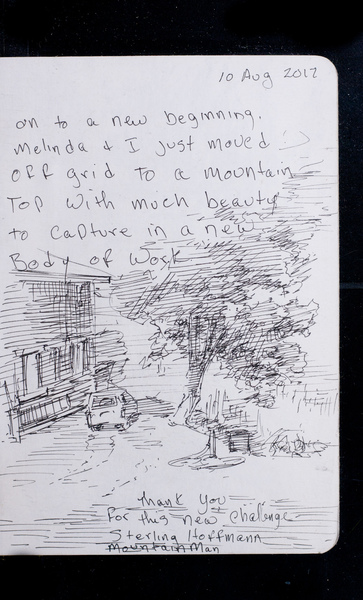 10 Aug 2017
on to a new beginning.
Melinda & I just moved
off grid To a mountain
Top with much beauty
to capture in a new
Body of Work
Thank You
for this new challenge
Sterling Hoffmann
Mountain Man